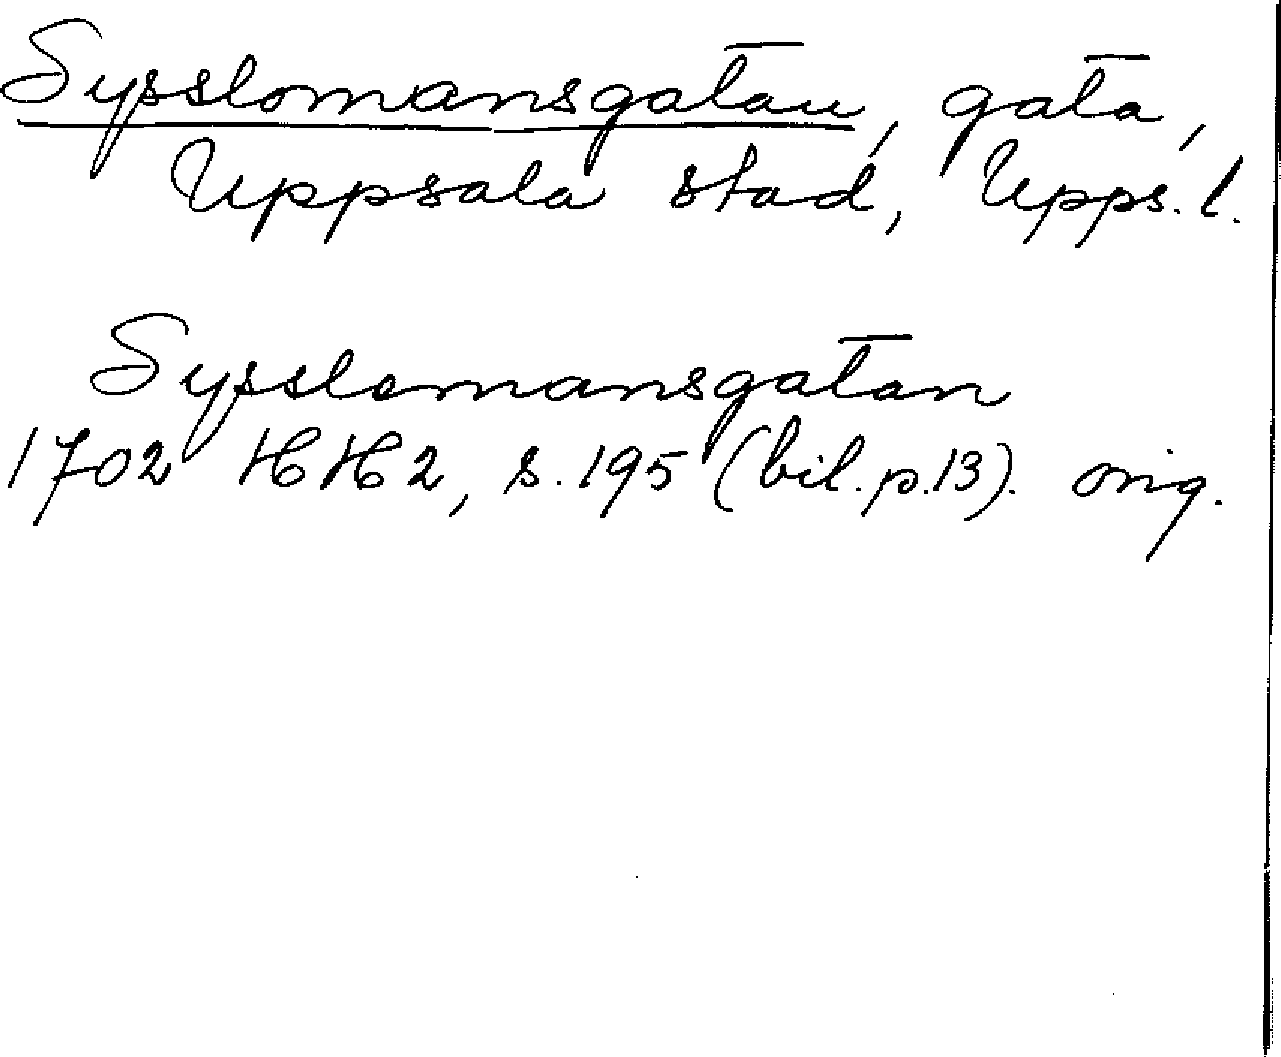 Sysslomansgatan, gata,
Uppsala stad, Upps. l.
Sysslomansgatan
1702 HH 2, s. 195 (bil. p. 13). orig.